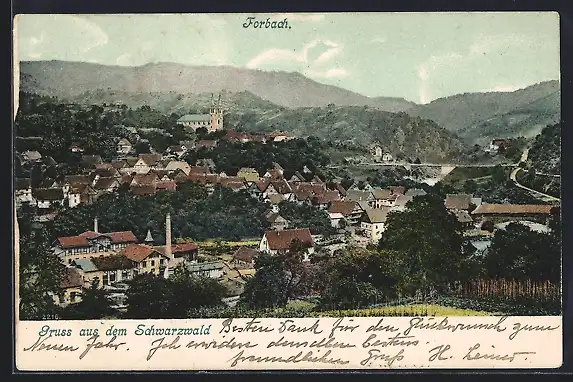 Forbach.
2216.
Gruss aus dem Schwarzwald Besten Dank für den Glückwunsch zum
Neuen Jahr. Ich werde denselben bestens.
freundlichen Gruß H.